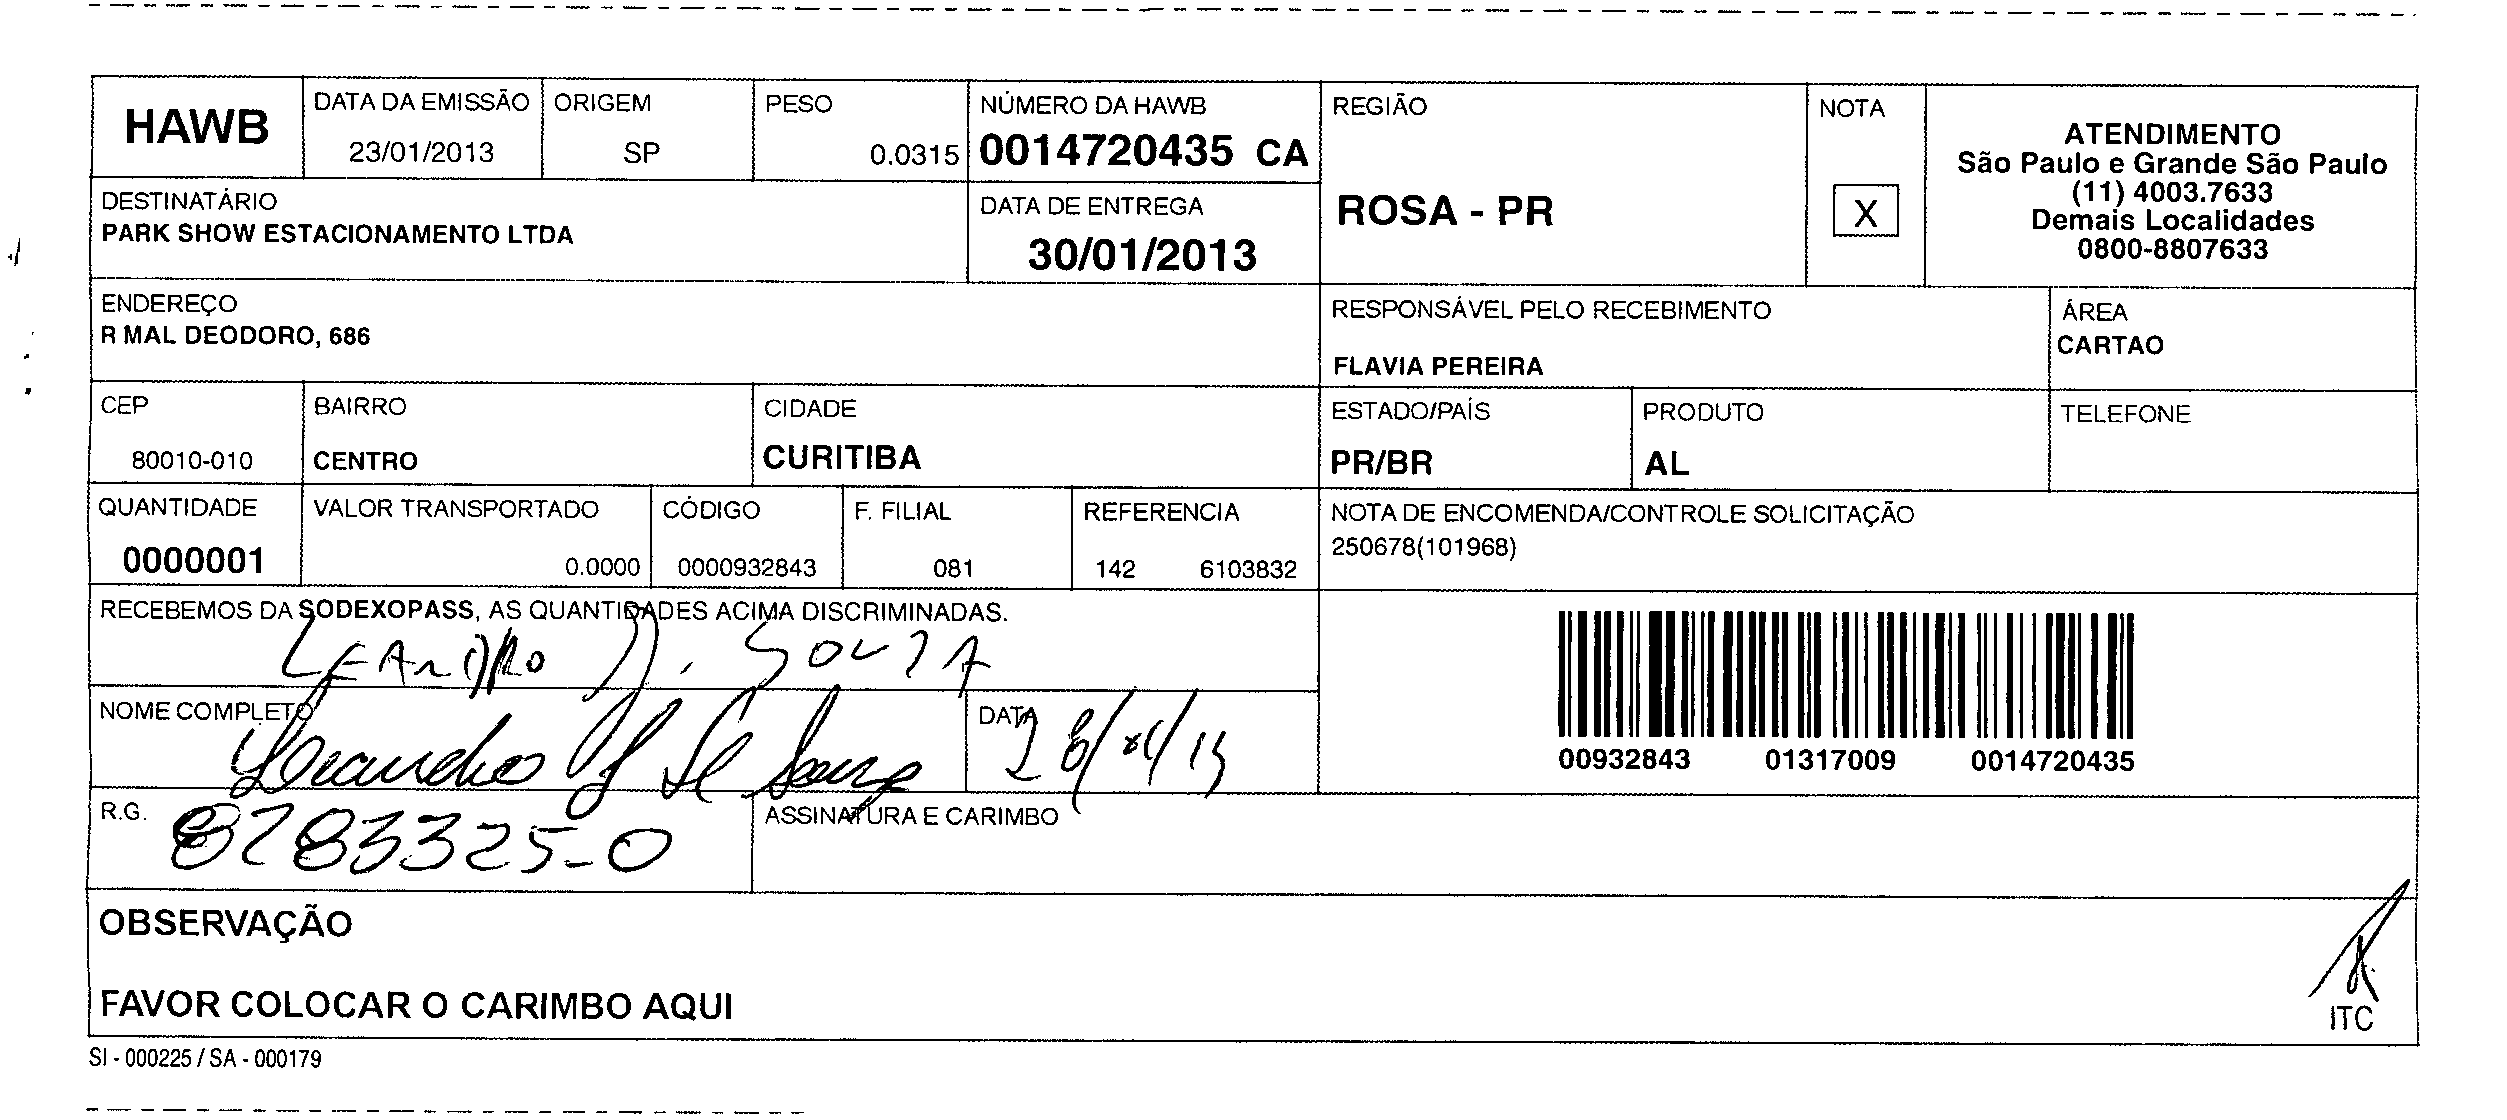 HAWB
DATA DA EMISSÃO
23/01/2013
ORIGEM
SP
PESO
0.0315
NÚMERO DA HAWB
0014720435 CA
REGIÃO
ROSA - PR
NOTA
X
ATENDIMENTO
São Paulo e Grande São Paulo
(11) 4003.7633
Demais Localidades
0800-8807633
DESTINATÁRIO
PARK SHOW ESTACIONAMENTO LTDA
DATA DE ENTREGA
30/01/2013
ENDEREÇO
R MAL DEODORO, 686
RESPONSÁVEL PELO RECEBIMENTO
FLAVIA PEREIRA
ÁREA
CARTAO
CEP
80010-010
BAIRRO
CENTRO
CIDADE
CURITIBA
ESTADO/PAÍS
PR/BR
PRODUTO
AL
TELEFONE
QUANTIDADE
0000001
VALOR TRANSPORTADO
0.0000
CÓDIGO
0000932843
F. FILIAL
081
REFERENCIA
142 6103832
NOTA DE ENCOMENDA/CONTROLE SOLICITAÇÃO
250678(101968)
RECEBEMOS DA SODEXOPASS, AS QUANTIDADES ACIMA DISCRIMINADAS.
LEANDRO J. SOUZA
NOME COMPLETO
Leandro J de Souza
DATA
00932843 01317009 0014720435
R.G.
8283325-0
ASSINATURA E CARIMBO
OBSERVAÇÃO
FAVOR COLOCAR O CARIMBO AQUI
ITC
SI - 000225 / SA - 000179